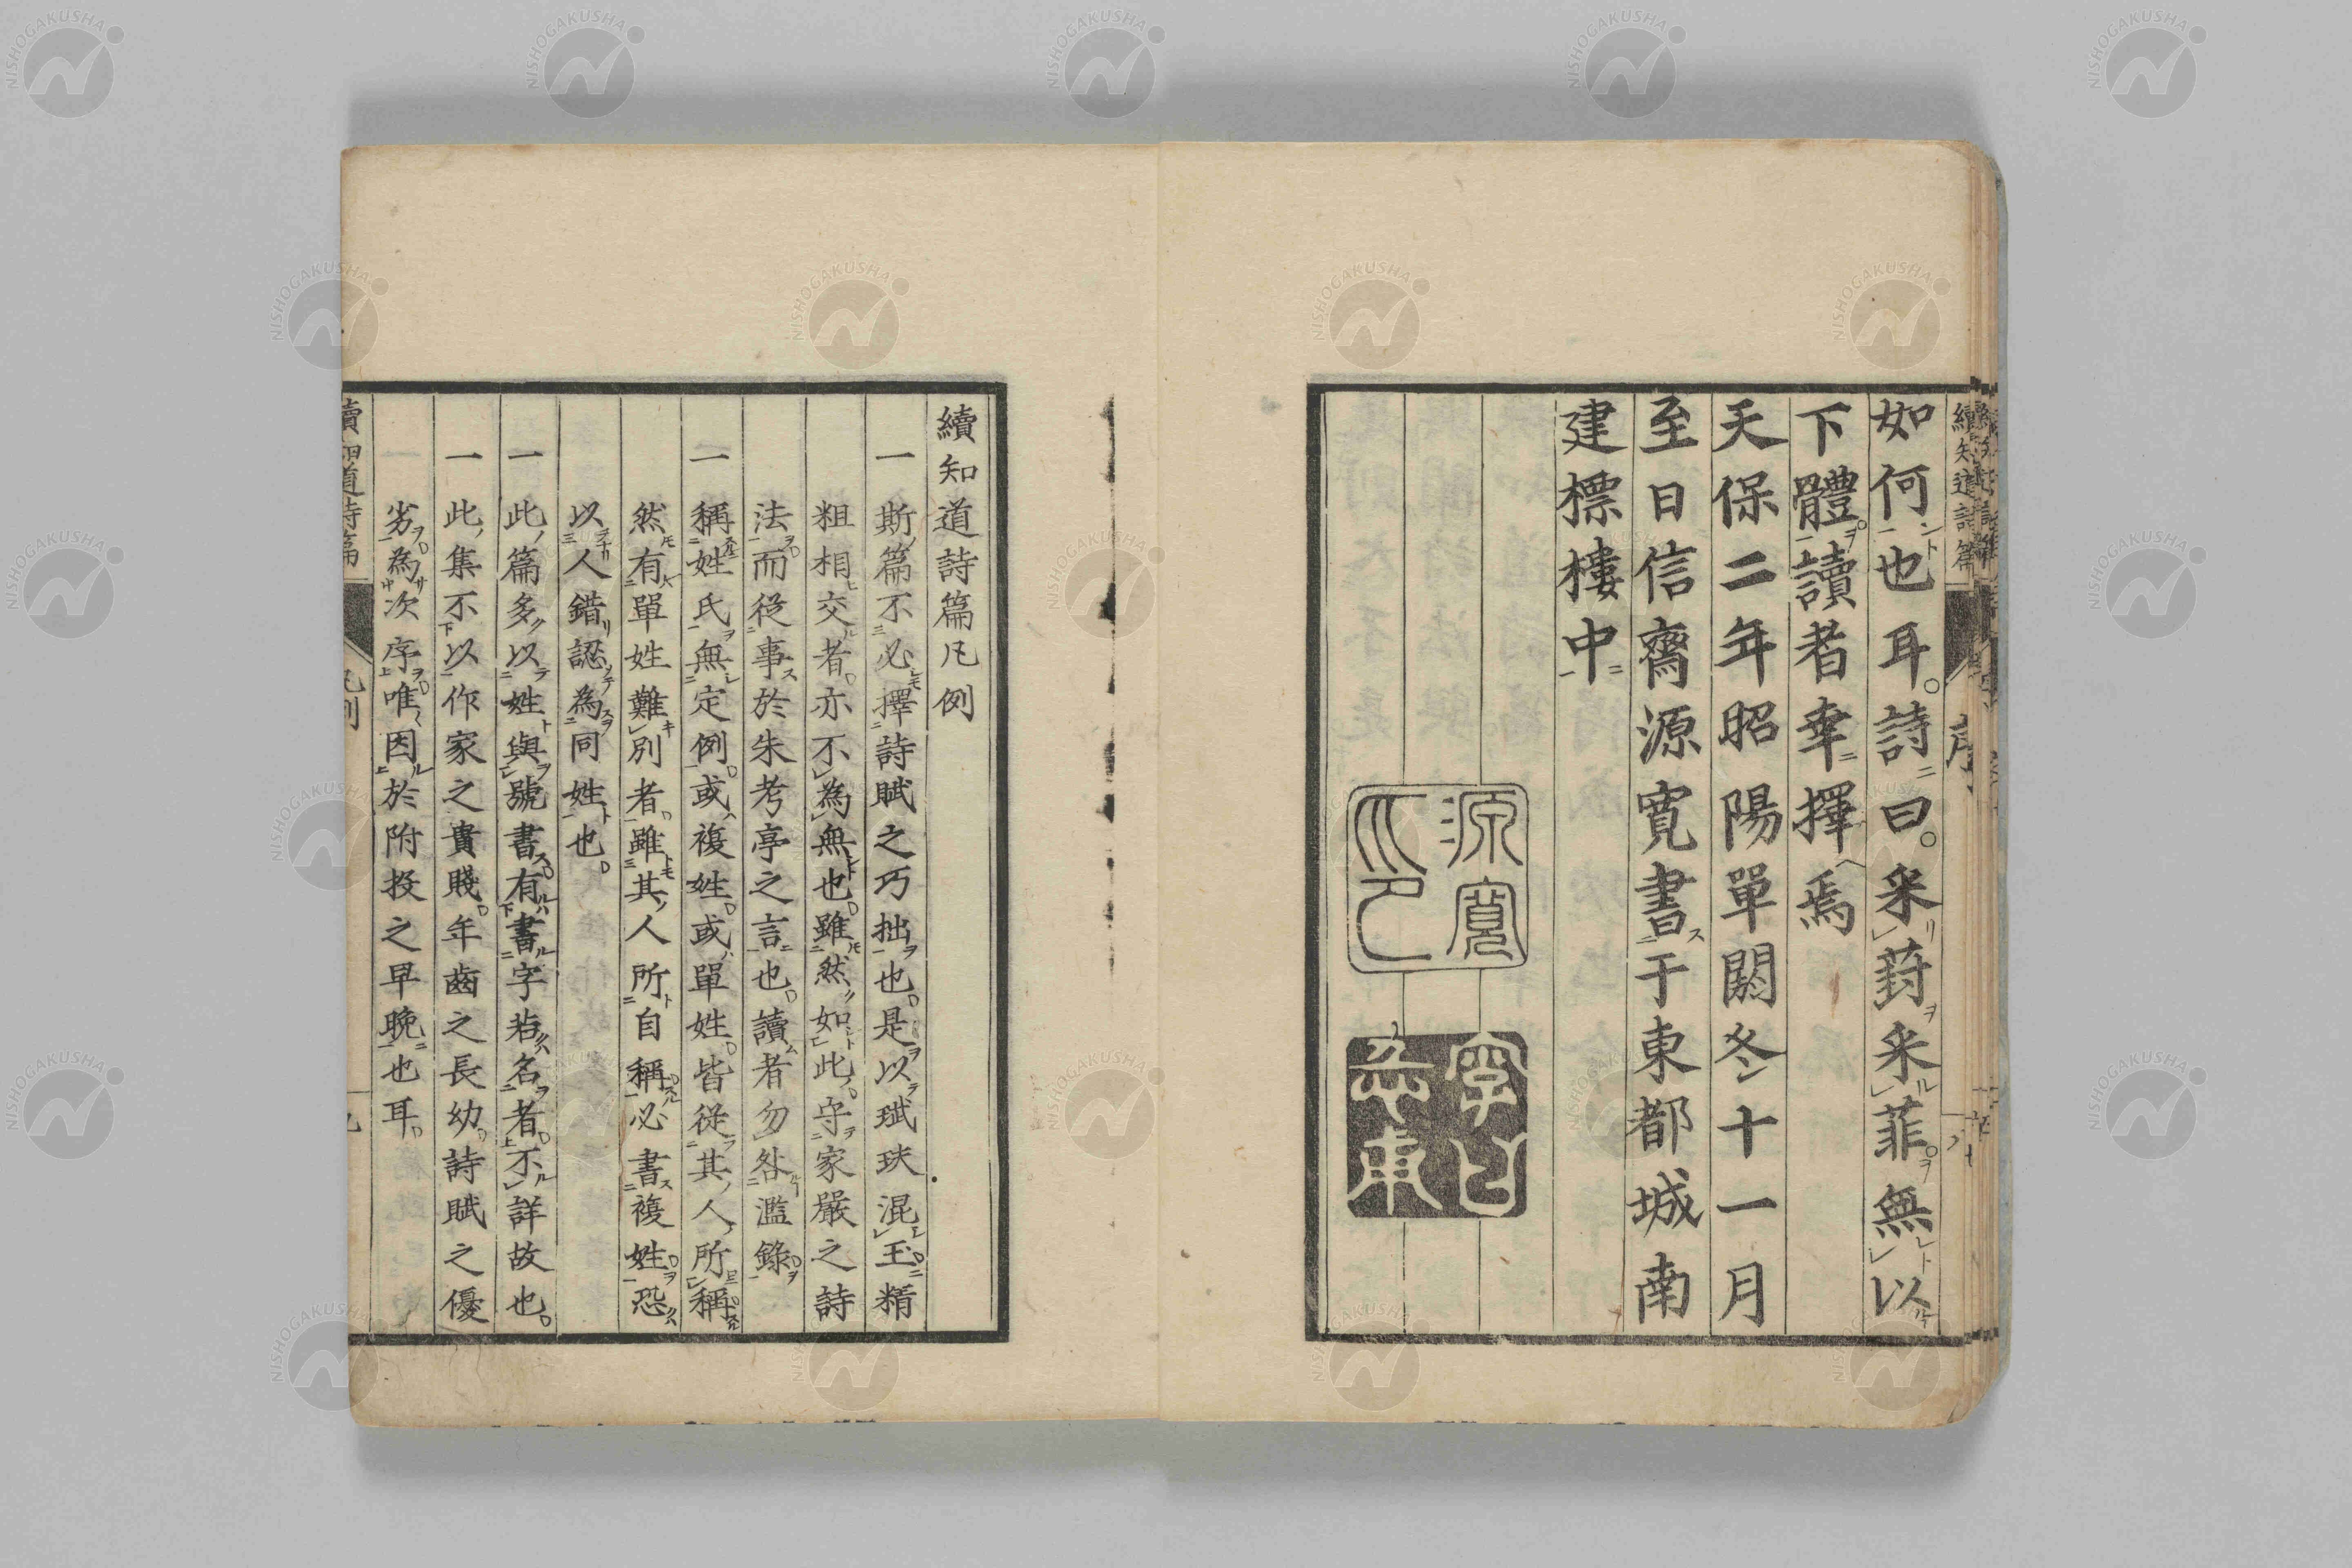 如何也耳詩曰采葑采菲無以
下體讀者幸擇焉
天保二年昭陽單閼冬十一月
至日信齋源寬書于東都城南
建標樓中
源寬
之印
續知道詩篇
序
續知道詩篇凡例
一斯篇不必擇詩賦之巧拙也是以珷玞混玉精
粗相交者亦不為無也雖然如此守家嚴之詩
法而從事於朱考亭之言也讀者勿咎濫錄
一稱姓氏無定例或複姓或單姓皆從其人所稱
然有單姓難別者雖其人所自稱必書複姓恐
以人錯認為同姓也
一此篇多以姓與號書有書字若名者不詳故也
一此集不以作家之貴賤年齒之長幼詩賦之優
劣為次序唯因於附投之早晚也耳
續知道詩篇
凡例
NISHOGAKUSHA